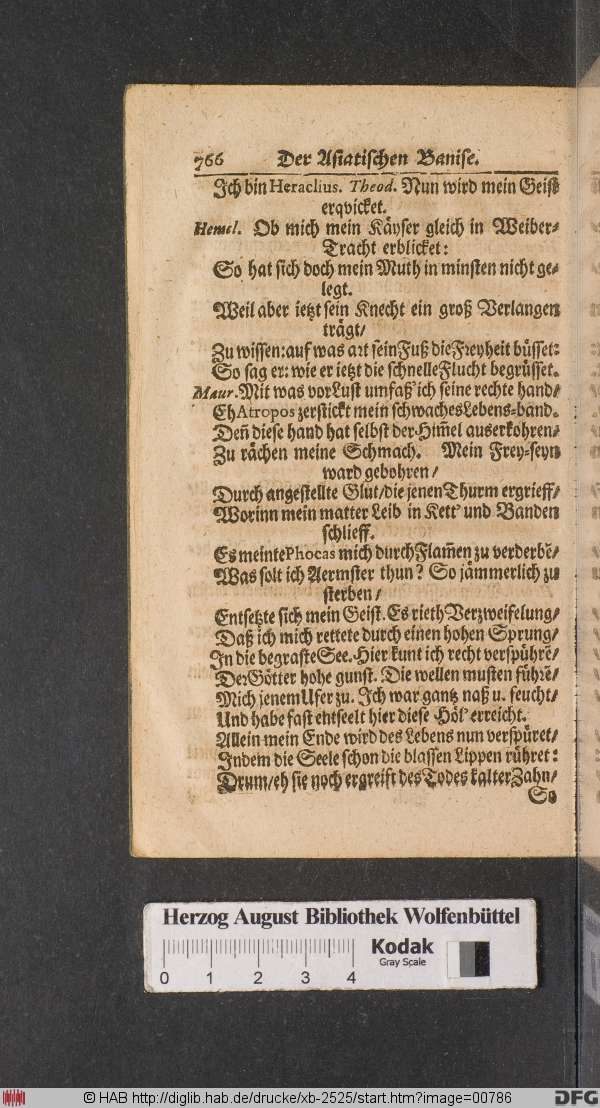 766 Der Asiatischen Banise.
Ich bin Heraclius. Theod. Nun wird mein Geist
erqvicket.
Hemel. Ob mich mein Käyser gleich in Weiber-
Tracht erblicket:
So hat sich doch mein Muth in minsten nicht ge-
legt.
Weil aber ietzt sein Knecht ein groß Verlangen
trägt/
Zu wissen: auf was art sein Fuß die Freyheit büsset:
So sag er: wie er ietzt die schnelle Flucht begrüsset.
Maur. Mit was vor Lust umfaß' ich seine rechte hand/
Eh Atropos zerstickt mein schwaches Lebens-band.
Deñ diese hand hat selbst der Him̃el auserkohren/
Zu rächen meine Schmach. Mein Frey-seyn
ward gebohren/
Durch angestellte Glut/die jenen Thurm ergrieff/
Worinn mein matter Leib in Kett' und Banden
schlieff.
Es meinte Phocas mich durch Flam̃en zu verderbẽ/
Was solt ich Aermster thun? So jämmerlich zu
sterben/
Entsetzte sich mein Geist. Es rieth Verzweifelung/
Daß ich mich rettete durch einen hohen Sprung/
In die begraste See. Hier kunt ich recht verspührẽ/
Der Götter hohe gunst. Die wellen musten führẽ/
Mich jenem Ufer zu. Ich war gantz naß u. feucht/
Und habe fast entseelt hier diese Höl' erreicht.
Allein mein Ende wird des Lebens nun verspüret/
Indem die Seele schon die blassen Lippen rühret:
Drum/eh sie noch ergreift des Todes kalter Zahn/
So
Herzog August Bibliothek Wolfenbüttel
Kodak
Gray Scale
0 1 2 3 4
© HAB http://diglib.hab.de/drucke/xb-2525/start.htm?image=00786
DFG